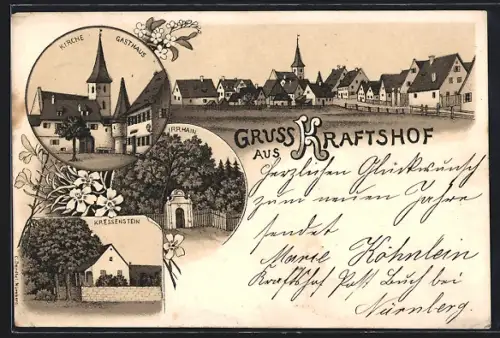 KIRCHE
GASTHAUS
IRRHAIN
GRUSS AUS KRAFTSHOF
KREUENSTEIN
Herzlichen Glückwunsch
zum neuen Jahre
sendet
Marie Köhnlein
Kraftshof Post Buch bei
Nürnberg.